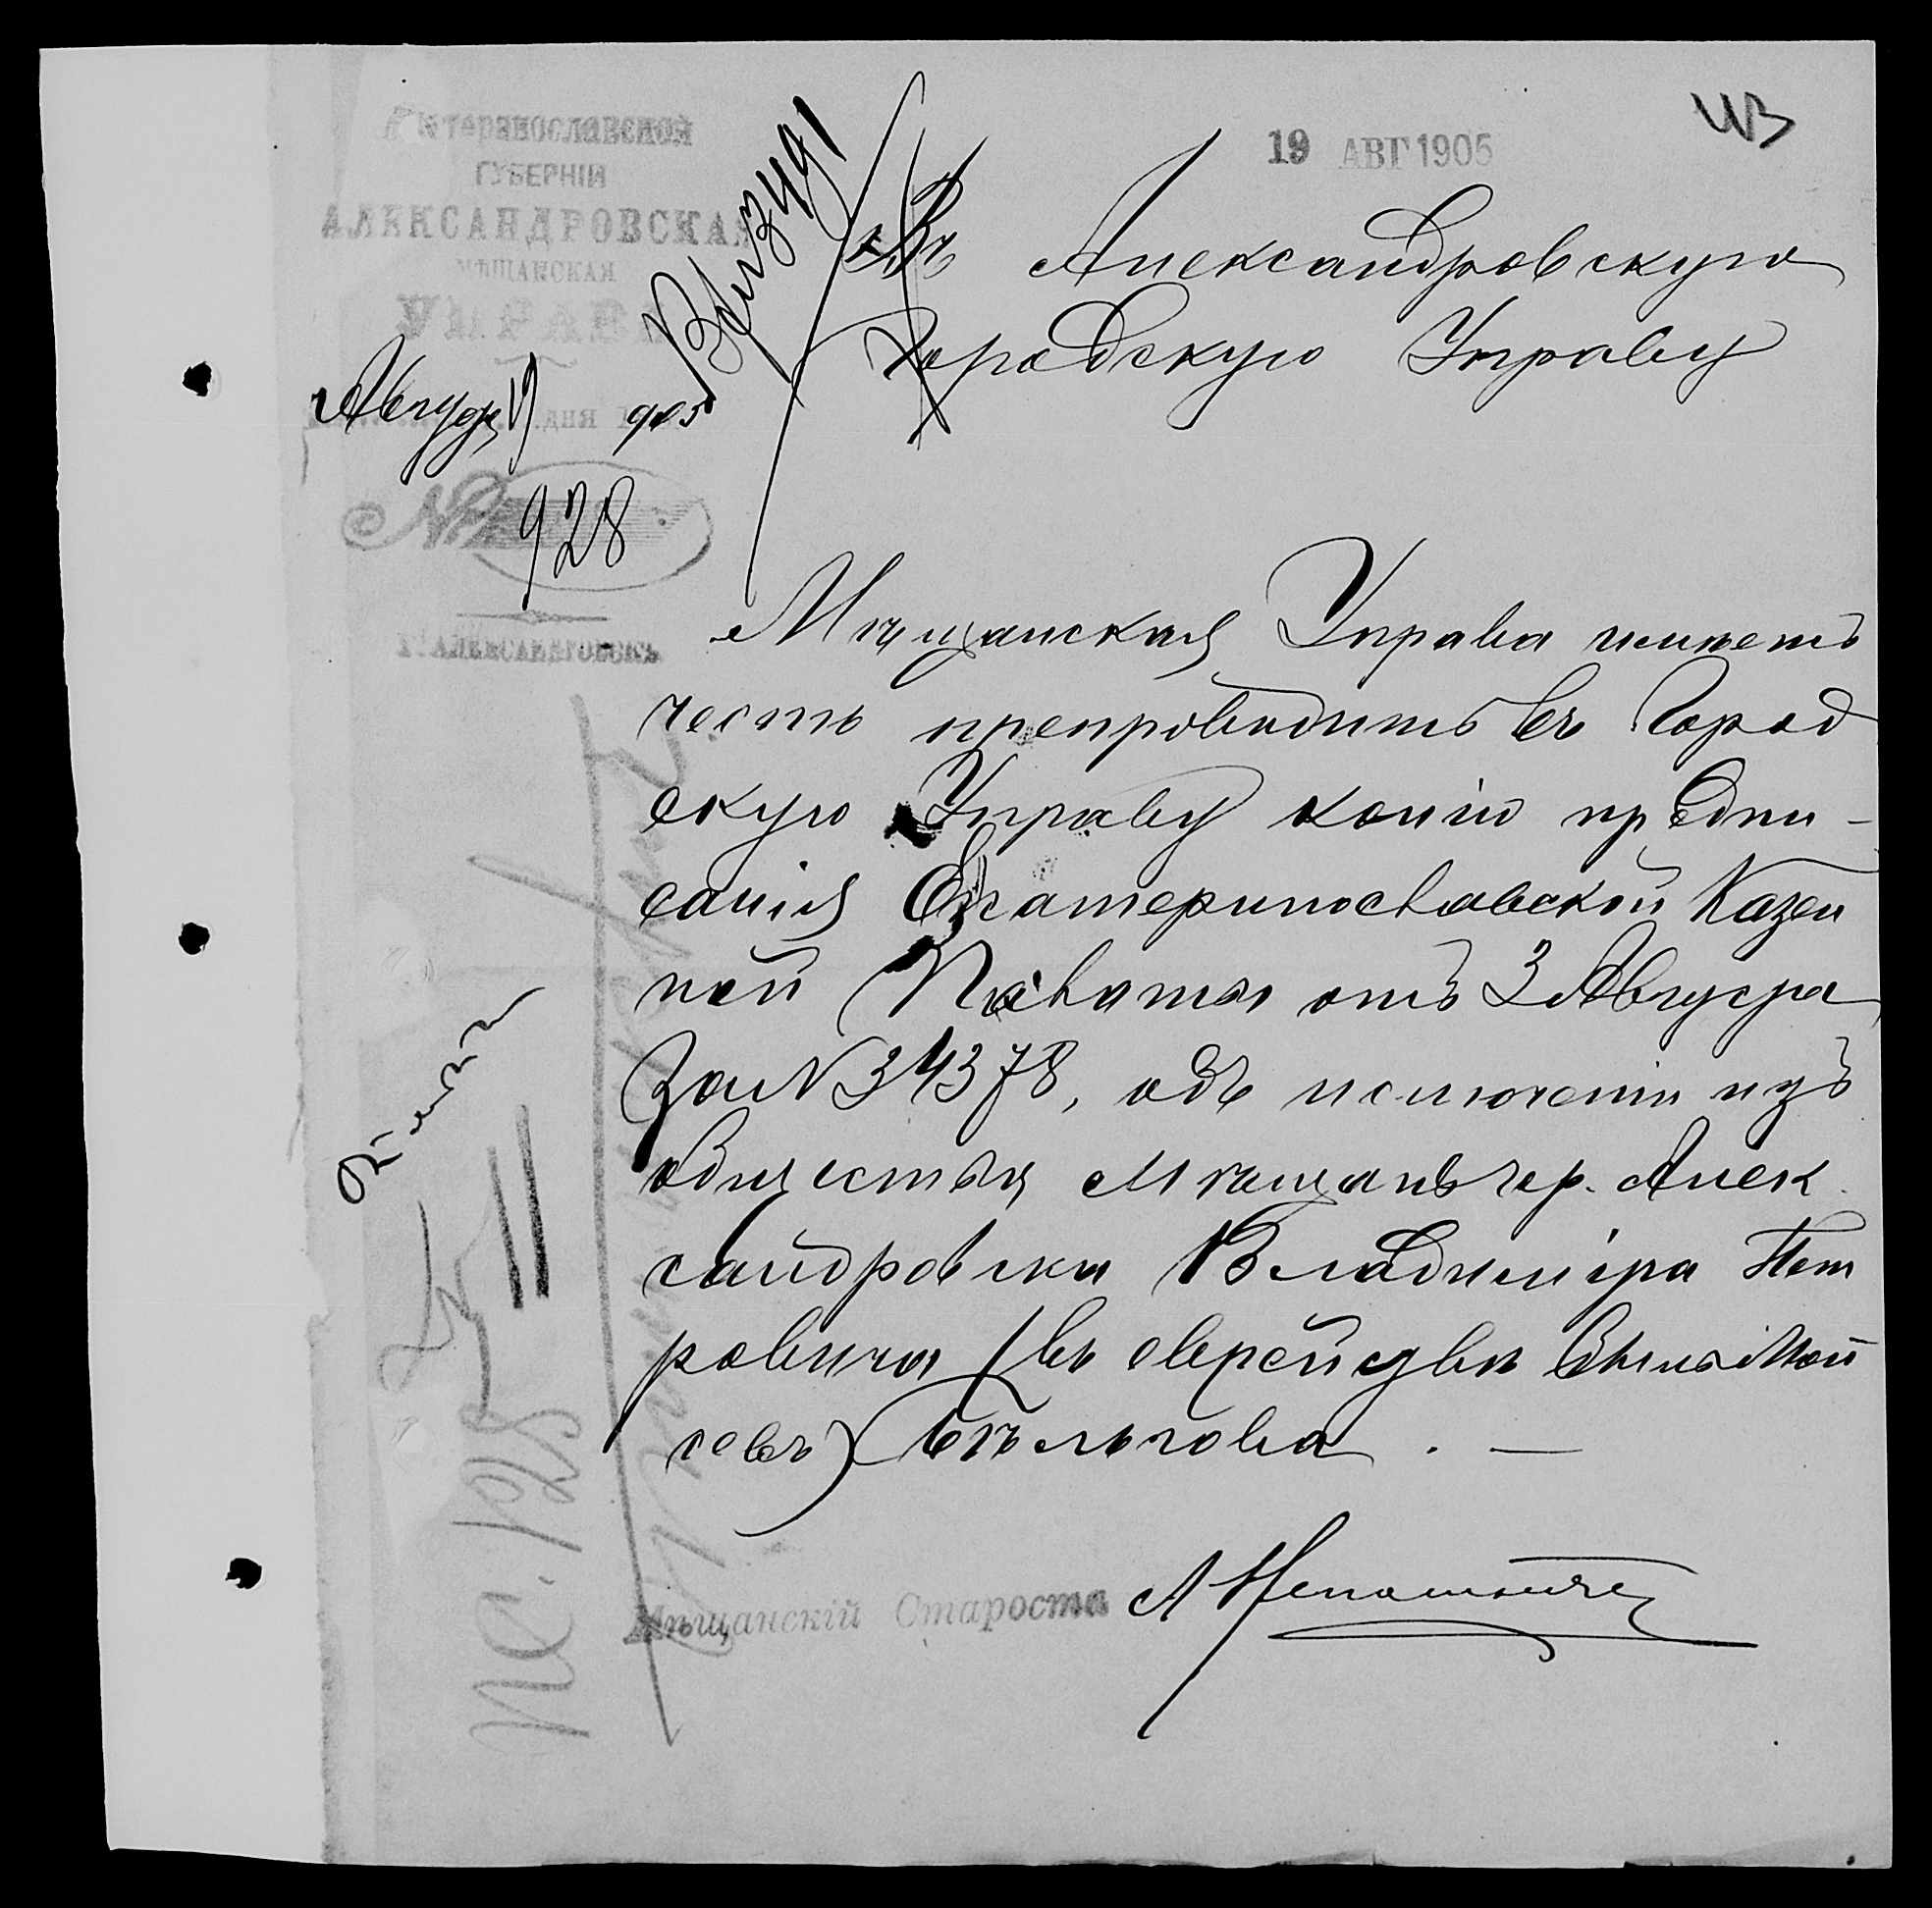 Екатеринославской
ГУБЕРНІИ
АЛЕКСАНДРОВСКАЯ
МѢЩАНСКАЯ
УПРАВА
Августа 19 дня 1905
№ 928
Г. АЛЕКСАНДРОВСКЪ
19 АВГ 1905
Въ Александровскую
Городскую Управу
Мѣщанская Управа имѣетъ
честь препроводить въ Город
скую Управу копію предпи-
санія Екатеринославской Казен
ной Палаты отъ 3 Августа
за N 34378, объ исключеніи изъ
общества мѣщанъ гор. Алек
сандровска Владиміра Пет
ровича (въ еврействѣ Мой
сеев) Бѣлькова. —
Мѣщанскій Староста